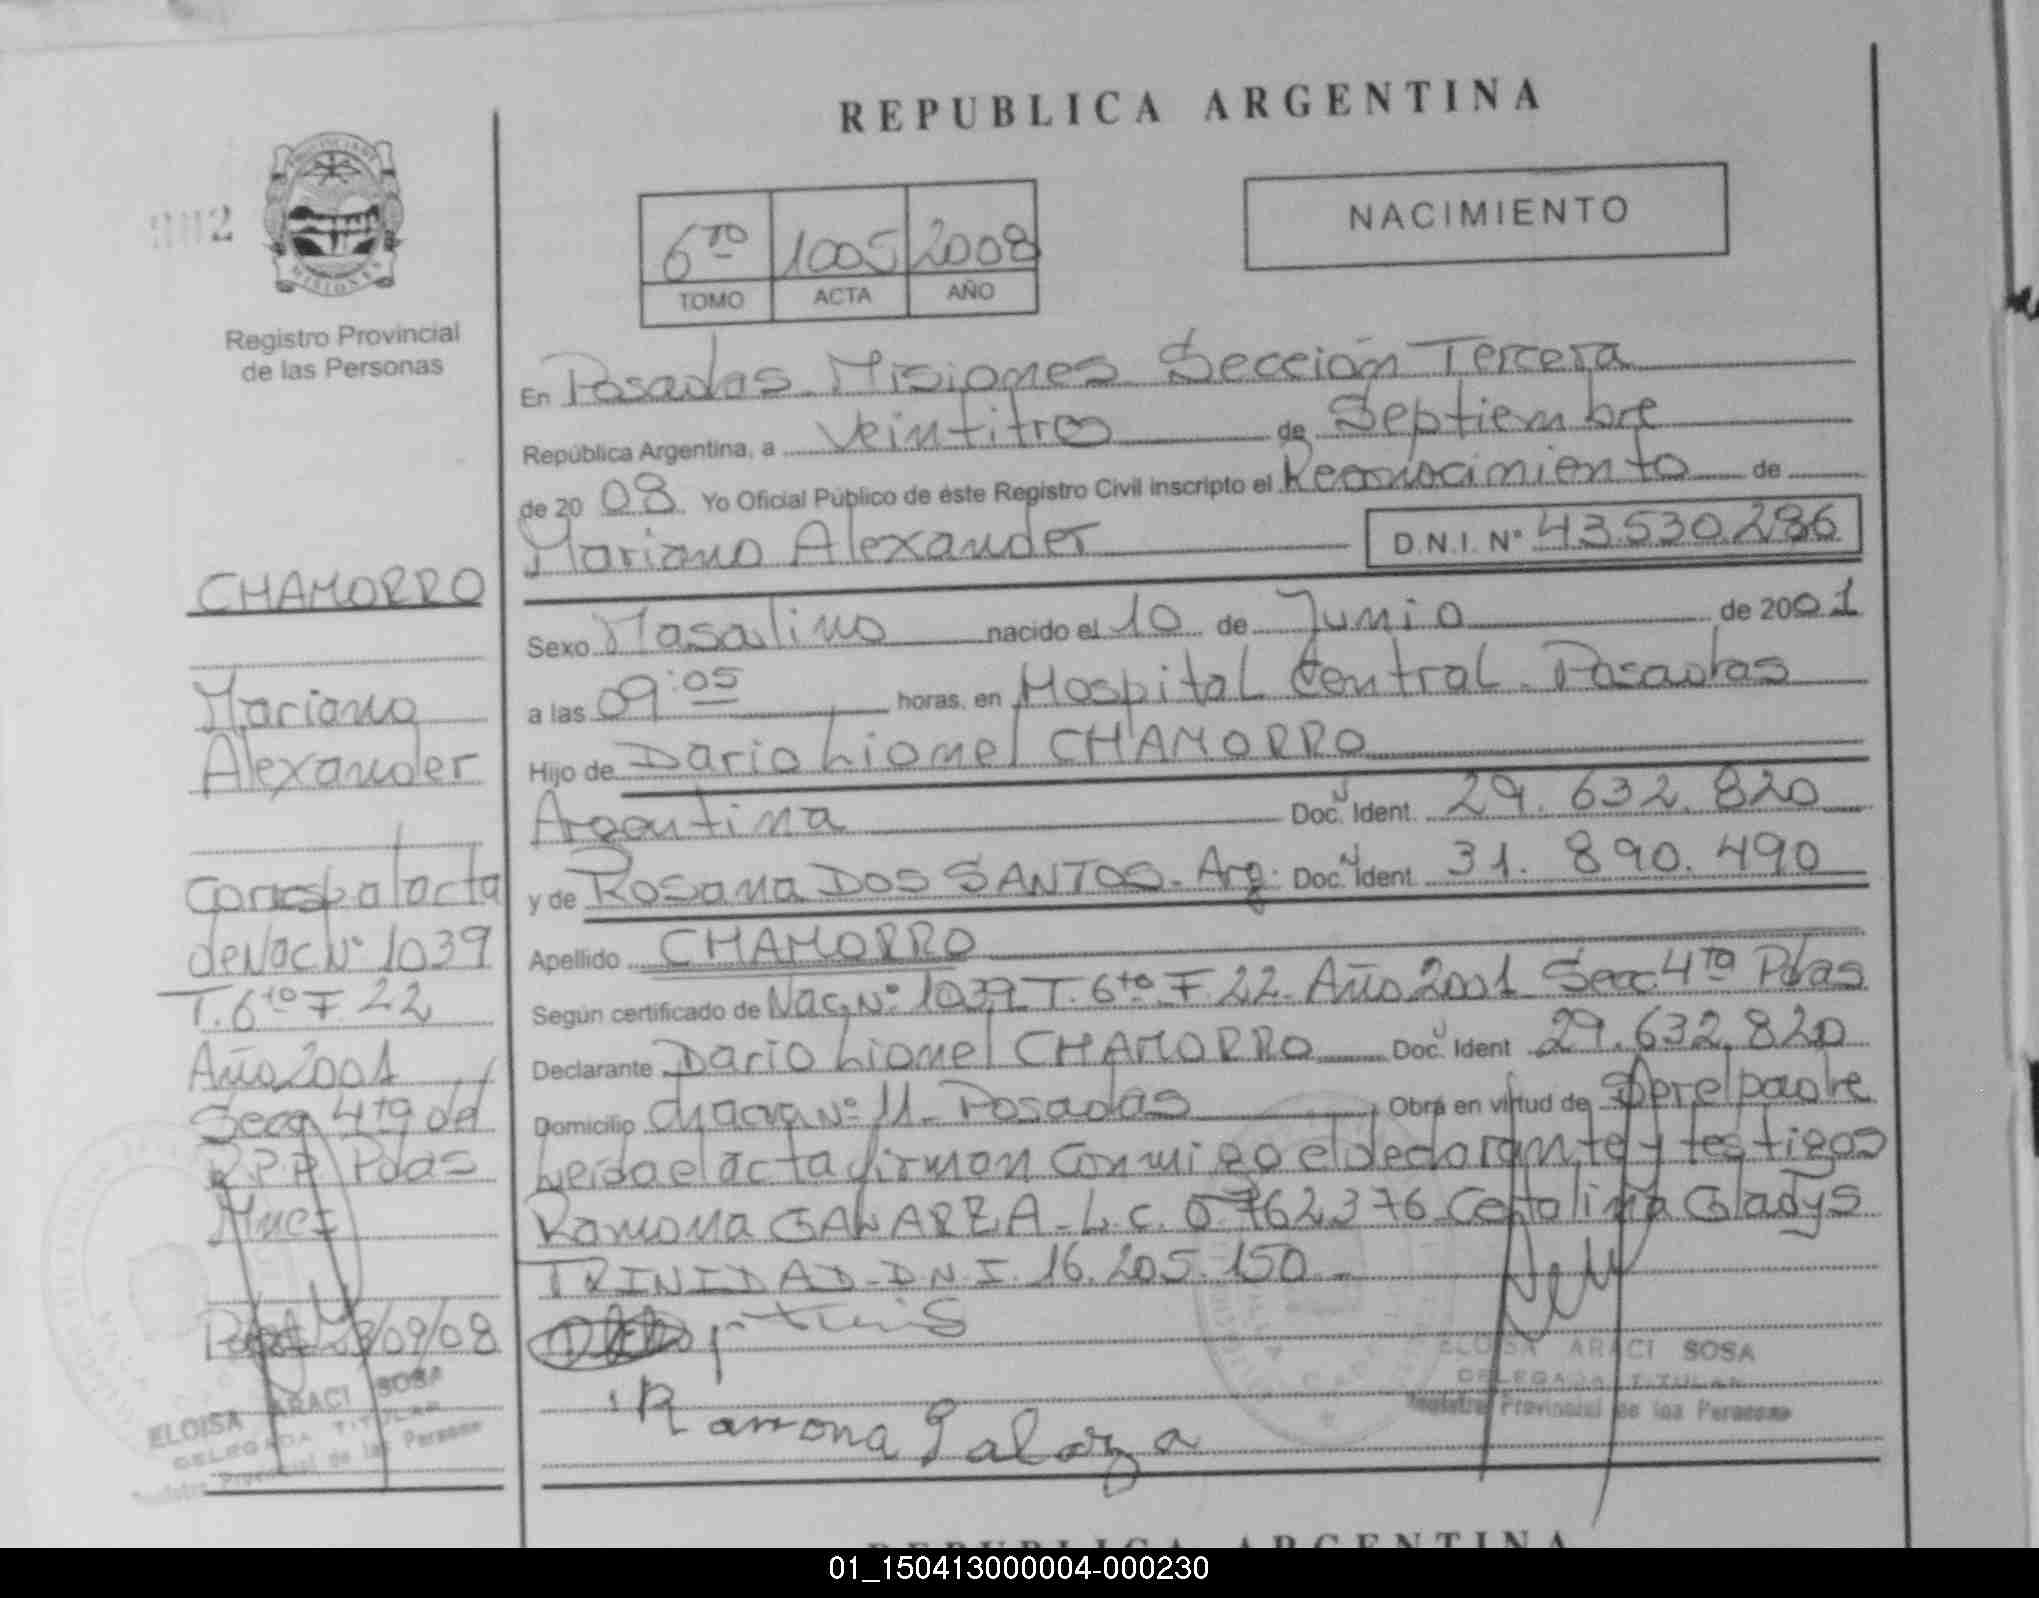 REPUBLICA ARGENTINA
NACIMIENTO
6TO 1005 2008
TOMO ACTA AÑO
Registro Provincial
de las Personas
CHAMORRO
Mariano
Alexander
Corresp al acta
de Nac Nº 1039
T. 6to F 22
Año 2001
Secc 4ta del
R.P.P. Pdas
23/09/08
ELOISA ARACI SOSA
DELEGADA TITULAR
Registro Provincial de las Personas
En Posadas Misiones Sección Tercera
República Argentina, a Veintitres de Septiembre
de 20 08 Yo Oficial Público de éste Registro Civil inscripto el Reconocimiento de
Mariano Alexander D.N.I. Nº 43.530.286
Sexo Masculino nacido el 10 de Junio de 2001
a las 09:05 horas, en Hospital Central. Posadas
Hijo de Dario Lionel CHAMORRO
Argentina Doc. Ident. 29.632.820
y de Rosana DOS SANTOS - Arg. Doc. Ident. 31.890.490
Apellido CHAMORRO
Según certificado de Nac. Nº 1039 T. 6to F. 22 - Año 2001 Secc. 4ta Pdas
Declarante Dario Lionel CHAMORRO Doc. Ident 29.632.820
Domicilio Chacra Nº 11 - Posadas Obra en virtud de Ser el padre
Leida el acta firman conmigo el declarante y testigos
Ramona GALARZA - L.C. 0.762.376 Catalina Gladys
TRINIDAD - D.N.I. 16.205.150 -
Ramona Galarza
ELOISA ARACI SOSA
DELEGADA TITULAR
Registro Provincial de las Personas
REPUBLICA ARGENTINA
01_150413000004-000230